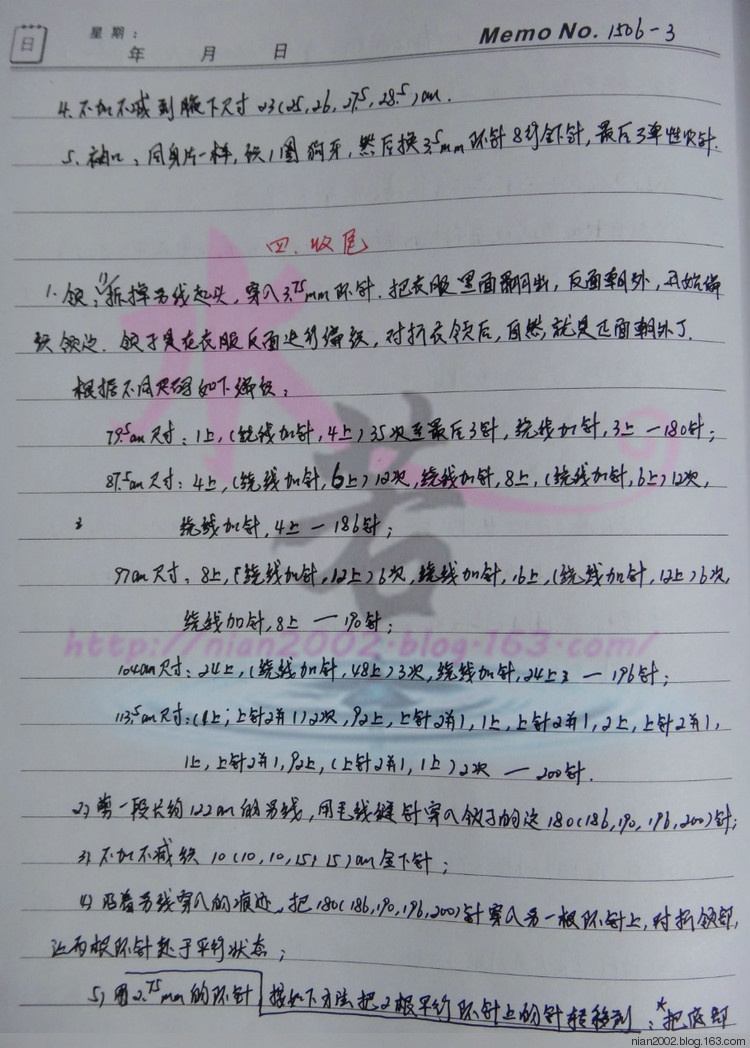 日
星期:
年 月 日
Memo No. 1506-3
4. 不加不减到腋下尺寸 23(25, 26, 27.5, 28.5)cm.
5. 袖口: 同身片一样, 织1圈狗牙, 然后换3.5mm环针8行全下针, 最后3单性收针.
四. 收尾
1. 领: 1) 拆掉另线起头, 穿入3.75mm环针. 把衣服里面翻出, 反面朝外, 开始编
织领边. 领子是在衣服反面进行编织, 对折衣领后, 自然就是正面朝外了.
根据不同尺码如下编织:
79.5cm尺寸: 1上, (绕线加针, 4上)35次至最后3针, 绕线加针, 3上 — 180针;
87.5cm尺寸: 4上, (绕线加针, 6上)12次, 绕线加针, 8上, (绕线加针, 6上)12次,
绕线加针, 4上 — 186针;
97cm尺寸: 8上, (绕线加针, 12上)6次, 绕线加针, 16上, (绕线加针, 12上)6次,
绕线加针, 8上 — 190针;
104cm尺寸: 24上, (绕线加针, 48上)3次, 绕线加针, 24上 — 196针;
113.5cm尺寸: (1上; 上针2并1)2次, 92上, 上针2并1, 1上, 上针2并1, 2上, 上针2并1,
1上, 上针2并1, 92上, (上针2并1, 1上)2次 — 200针.
2) 剪一段长约122cm的另线, 用毛线缝针穿入领子的边180(186, 190, 196, 200)针;
3) 不加不减织 10(10, 10, 15, 15)cm全下针;
4) 沿着另线穿入的痕迹, 把180(186, 190, 196, 200)针穿入另一根环针上, 对折领部,
让两根环针处于平行状态;
5) 用2.75mm的环针 按如下方法把2根平行环针上的针转移到: *把底部
水若
http://nian2002.blog.163.com/
nian2002.blog.163.com